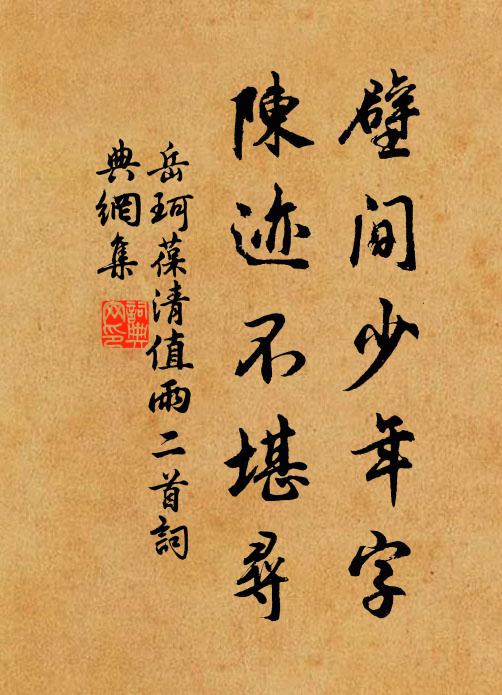 壁间少年字
陳迹不堪尋
岳珂葆清值雨二首詞
典網集
詞典网印